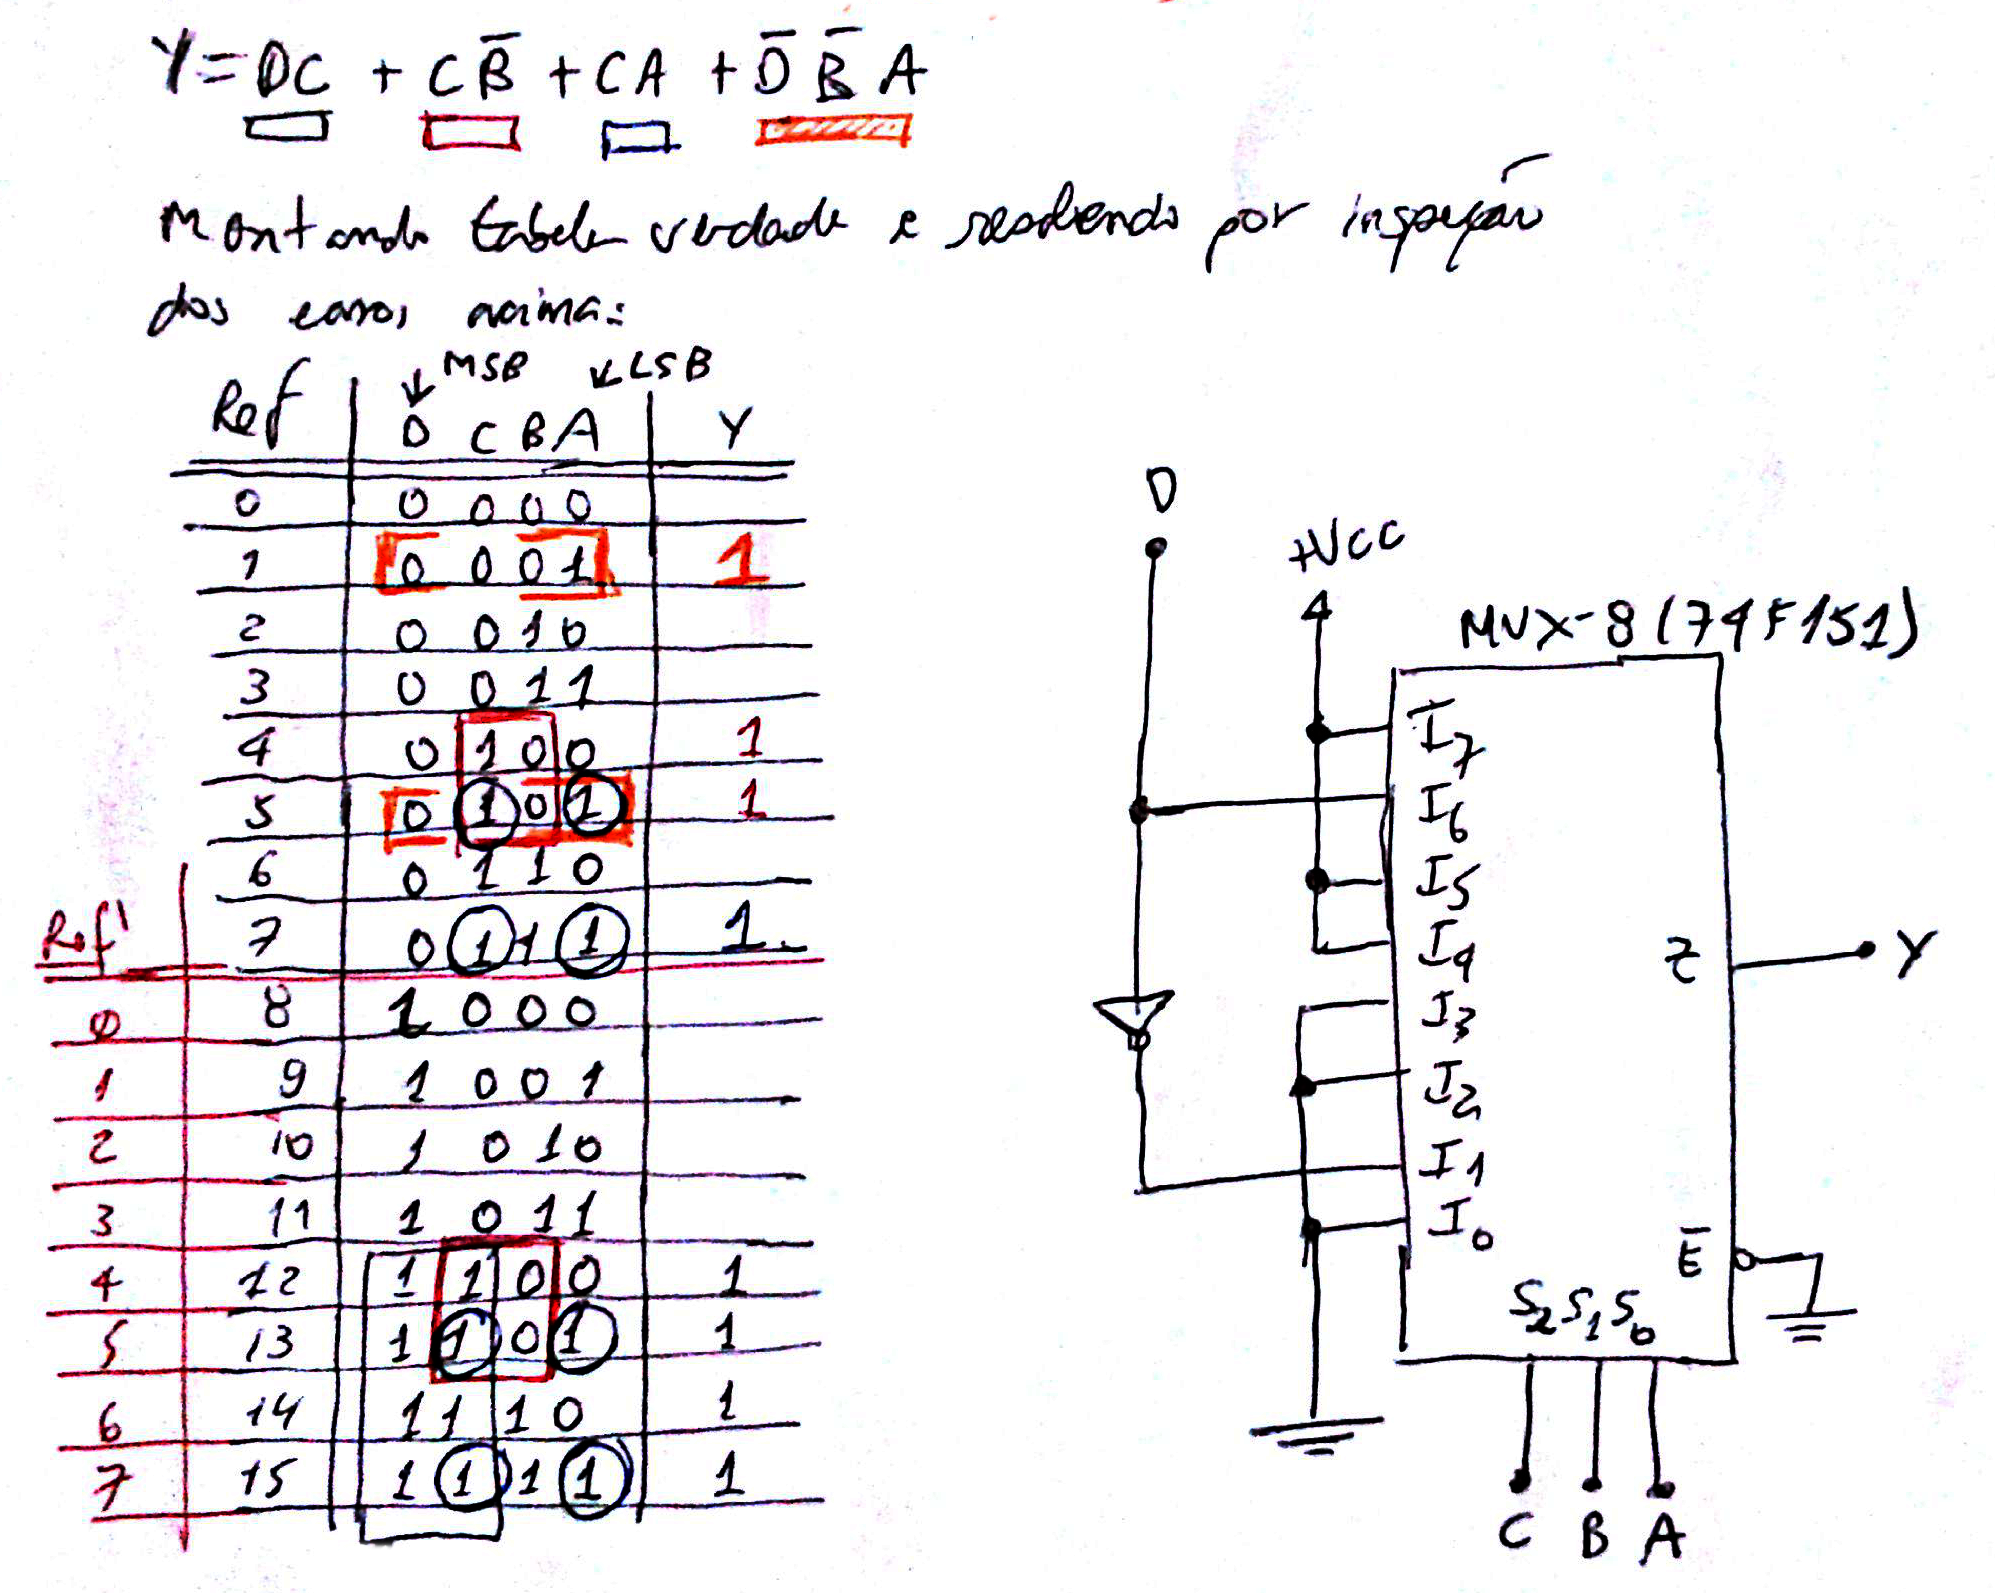 Y = DC + CB̅ + CA + D̅ B̅ A
Montando tabela verdade e resolvendo por inspeção
dos casos acima:
MSB LSB
Ref D C B A Y
0 0 0 0 0
1 0 0 0 1 1
2 0 0 1 0
3 0 0 1 1
4 0 1 0 0 1
5 0 1 0 1 1
6 0 1 1 0
7 0 1 1 1 1
Ref'
0 8 1 0 0 0
1 9 1 0 0 1
2 10 1 0 1 0
3 11 1 0 1 1
4 12 1 1 0 0 1
5 13 1 1 0 1 1
6 14 1 1 1 0 1
7 15 1 1 1 1 1
D
+VCC
MUX-8 (74F151)
I7
I6
I5
I4
I3
I2
I1
I0
Z
Y
E̅
S2 S1 S0
C B A